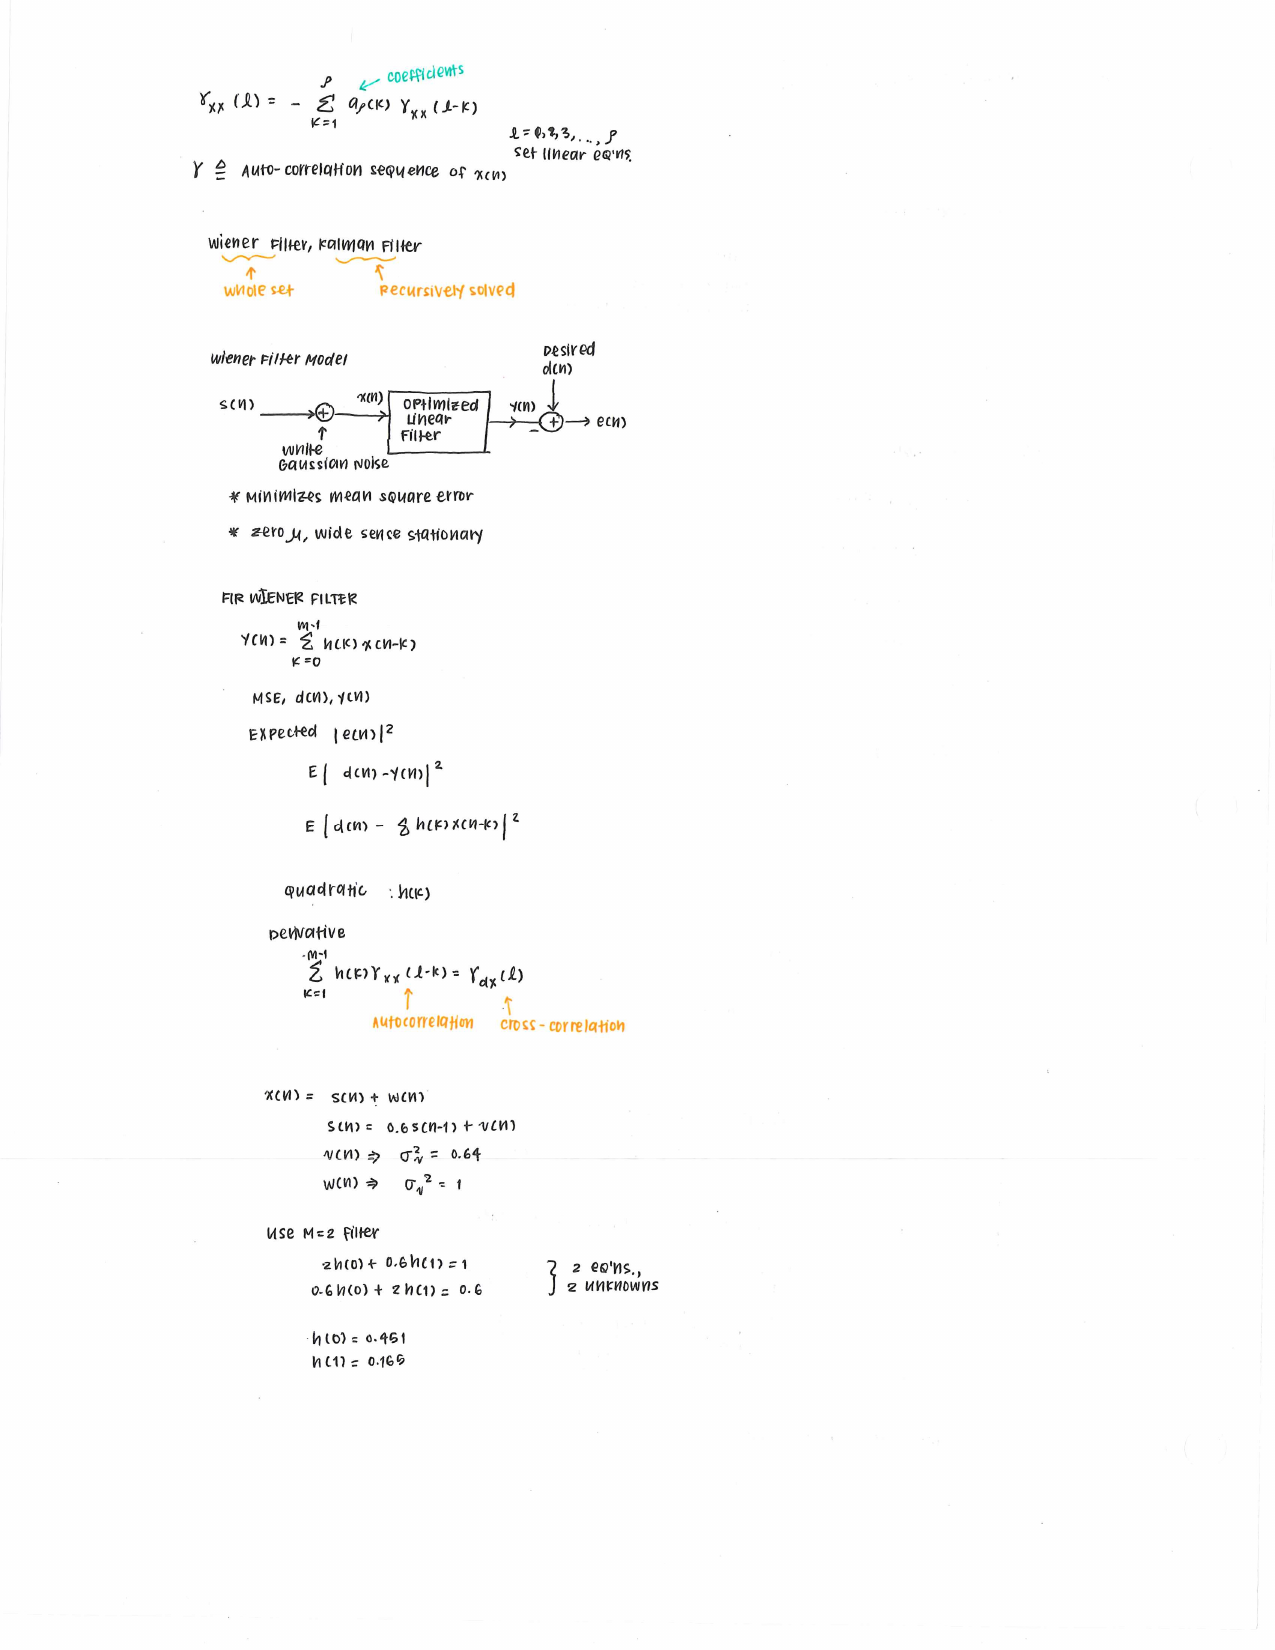 coefficients
γxx (l) = - Σ_{k=1}^{p} ap(k) γxx (l-k)
l = 1, 2, 3, ..., p
set linear eq'ns.
γ ≜ Auto-correlation sequence of x(n)
Wiener Filter, Kalman Filter
whole set Recursively solved
Wiener Filter Model
Desired
d(n)
s(n) + x(n) Optimized Linear Filter y(n) - + e(n)
White
Gaussian Noise
* Minimizes mean square error
* zero μ, wide sence stationary
FIR WIENER FILTER
y(n) = Σ_{k=0}^{M-1} h(k) x(n-k)
MSE, d(n), y(n)
Expected |e(n)|²
E| d(n) - y(n)|²
E |d(n) - Σ h(k) x(n-k)|²
quadratic : h(k)
Derivative
Σ_{k=1}^{M-1} h(k) γxx (l-k) = γdx (l)
Autocorrelation cross-correlation
x(n) = s(n) + w(n)
s(n) = 0.6 s(n-1) + v(n)
v(n) ⇒ σv² = 0.64
w(n) ⇒ σv² = 1
Use M=2 Filter
2h(0) + 0.6h(1) = 1
0.6h(0) + 2h(1) = 0.6
} 2 eq'ns.,
2 unknowns
h(0) = 0.451
h(1) = 0.165